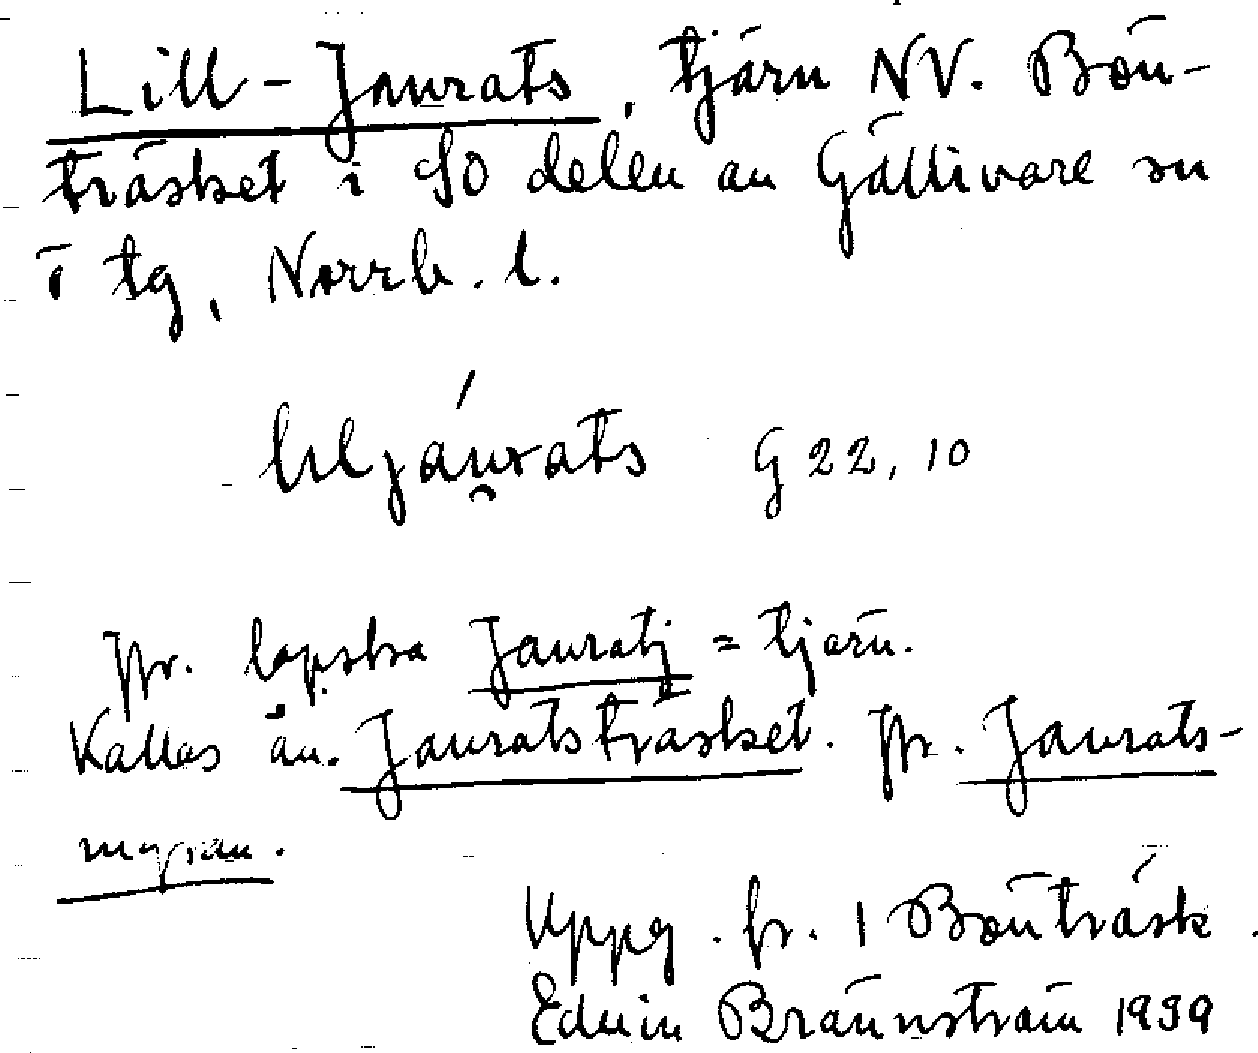 Lill-Jaurats, tjärn NV. Bön-
träsket i SO delen av Gällivare sn
o tg, Norrb. l.
liljáu̯rats G 22, 10
Jfr. lapska Jauratj = tjärn.
Kallas äv. Jauratsträsket. Jfr. Jaurats-
myran.
Uppg. fr. 1 Bönträsk.
Edvin Brännström 1939